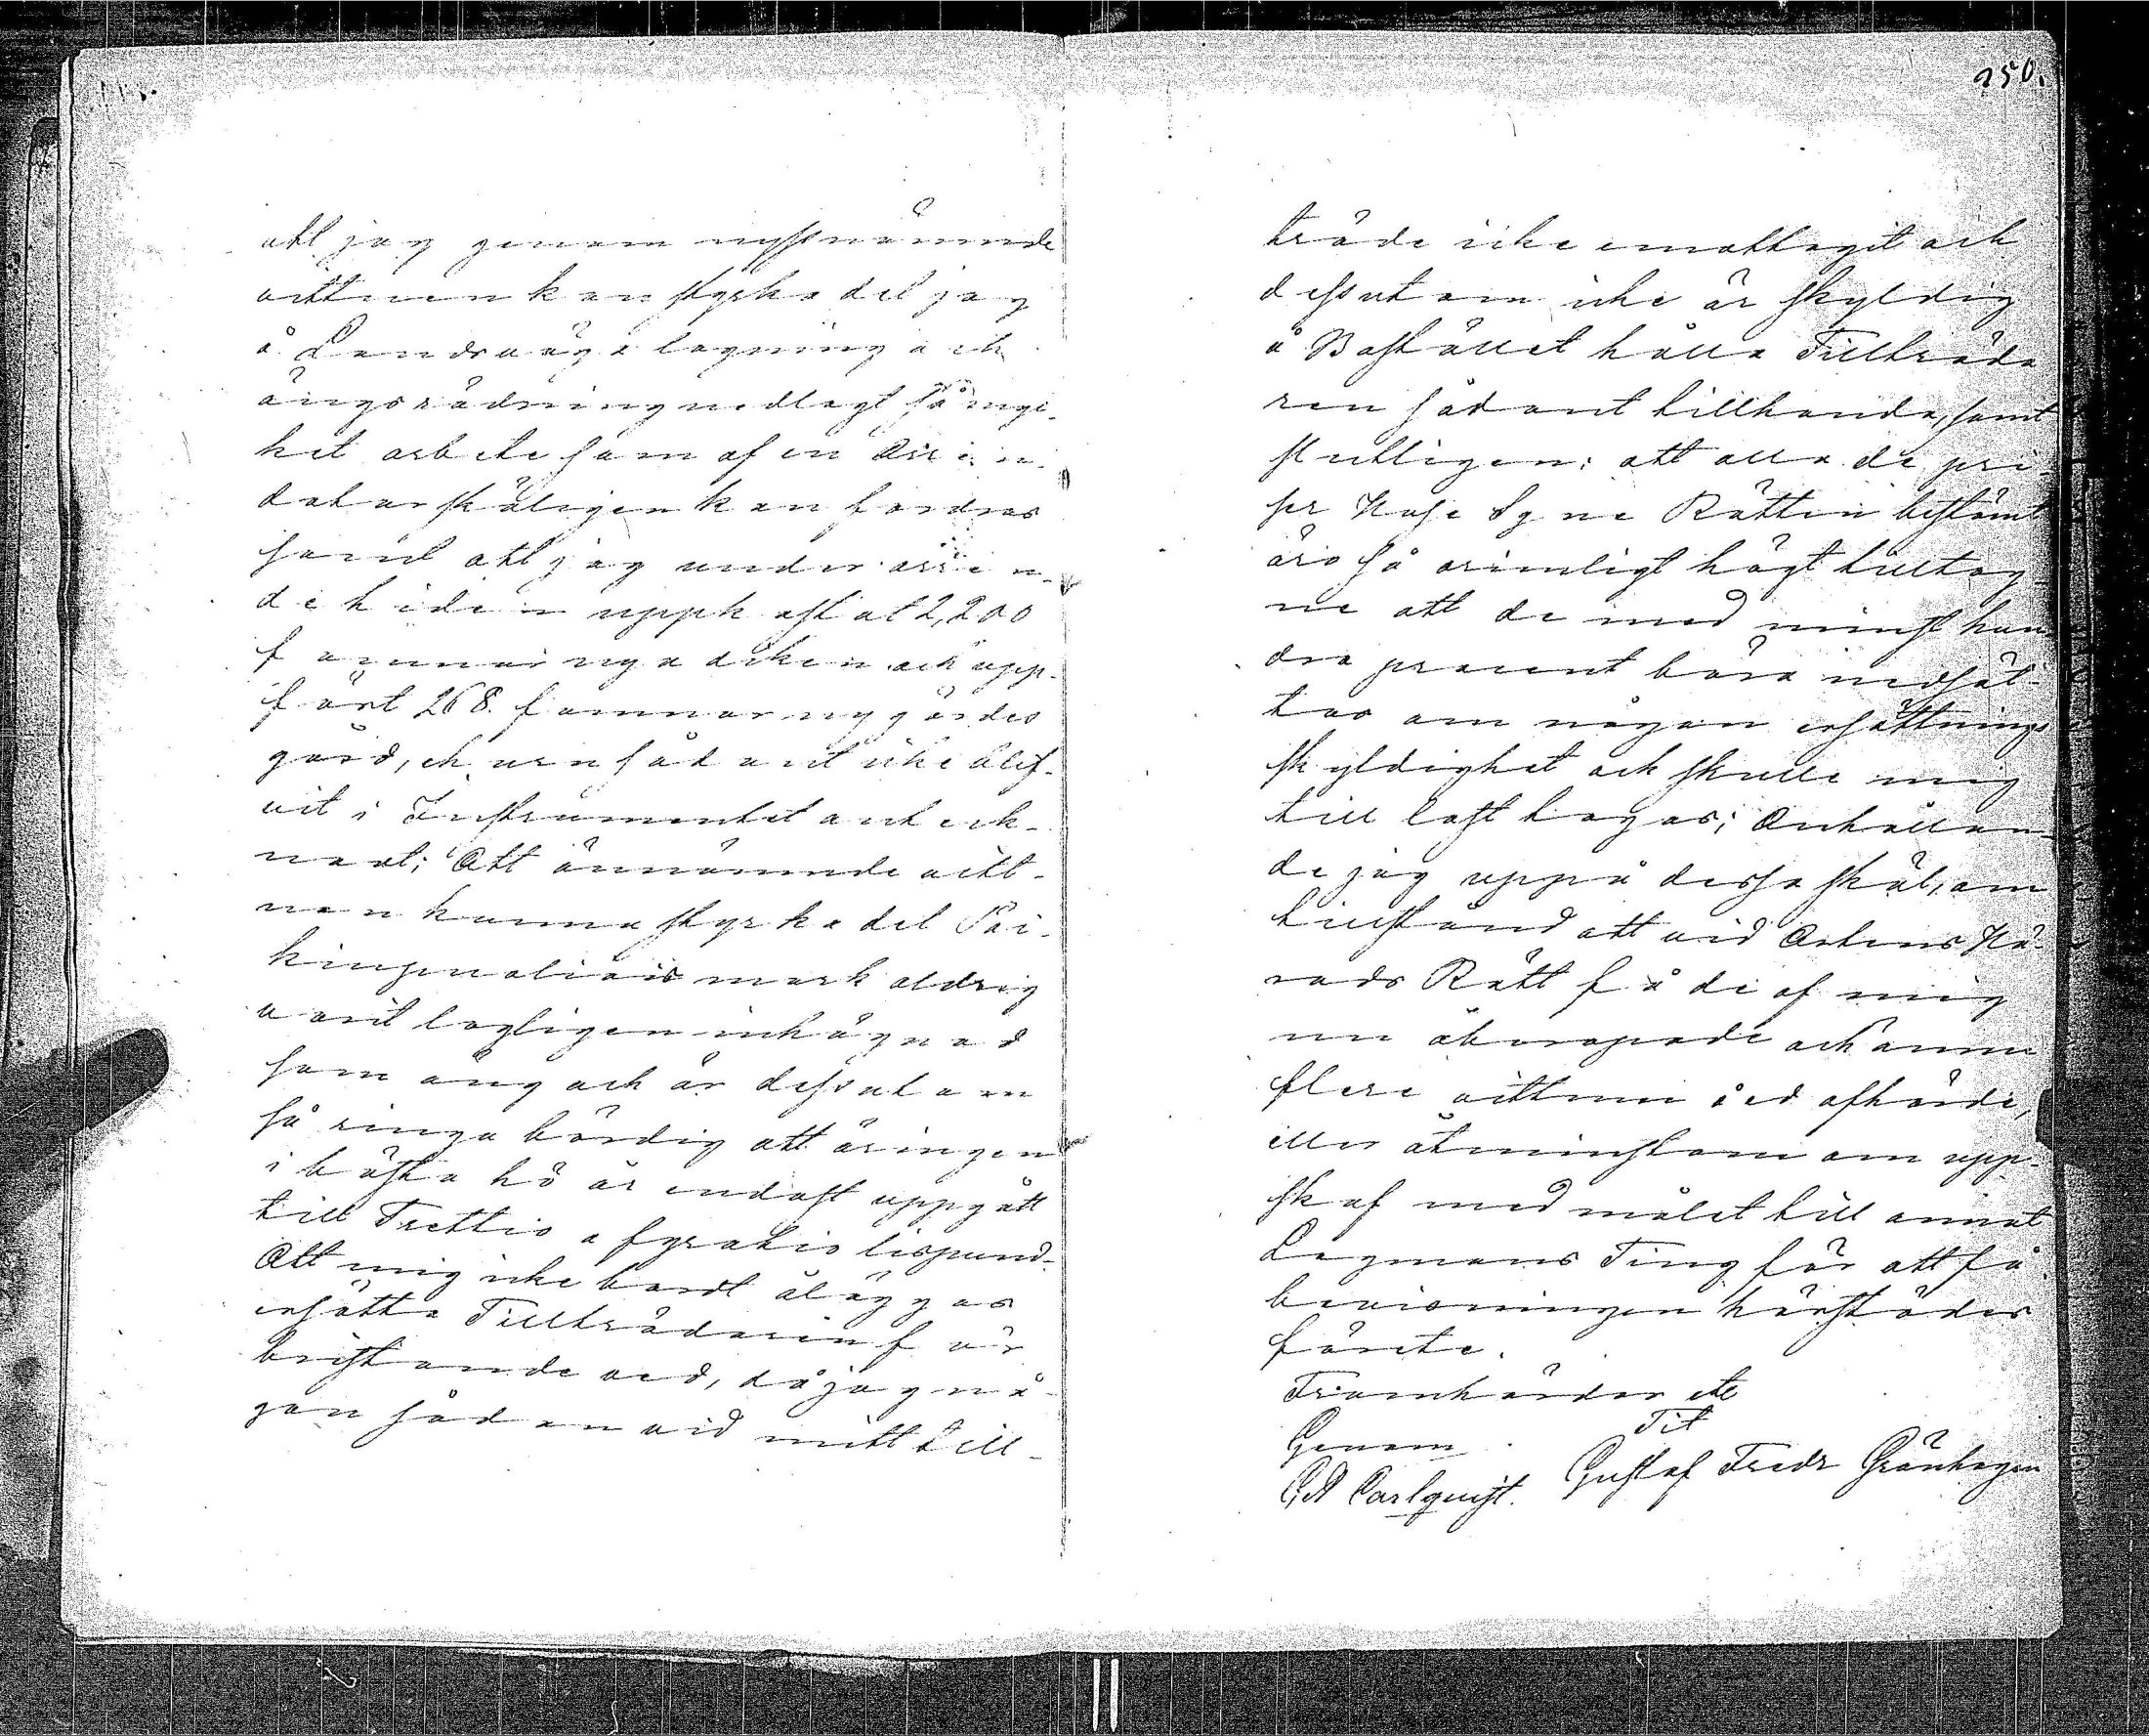 250.
att jag genom nyssnämnde
vittnen kan styrka det jag
å Landsvägalagning och
ängsrödning nedlagt så myc-
ket arbete som af en Arren-
dator skäligen kan fordras
samt att jag under arren-
detiden uppkastat 2,200
famnar nya diken och upp-
fört 268 famnar ny gärdes
gård, ehuru sådant icke blif-
vit i Instrumentet anteck-
nadt; Att ännämnde vitt-
nen kunna styrka det
mark aldrig
varit lagligen inhägnad
som äng och är dessutom
så ringa bördig att äringen
i bästa hö är endast uppgått
till Trettio a fyratio lispund.
Att mig icke bordt åläggas
ersätta Tillträdaren för
bristande ved, då jag nå-
gon sådan vid mitt till-
träde icke emottagit och
dessutom icke är skyldig
å Bostället hålla Tillträda
ren sådant tillhanda, samt
slutligen: att alla de pri-
ser Huse Syne Rätten bestämt
äro så orimligt högt tilltag-
ne att de med minst hun
dra procent böra nedsät-
tas om någon ersättnings
skyldighet ock skulle mig
till last tagas; Anhållan-
de jag uppå dessa skäl, om
tillstånd att vid Ortens Hä-
rads Rätt få de af mig
nu åberopade och ännu
flere vittnen å ed afhörde,
eller åtminstone om upp-
skof med målet till annat
Lagmans Ting för att få
bevisningen härstädes
förete.
Framhärdar etc
Tit
Genom
Gustaf Fredr Grönhagen
Carlquist.